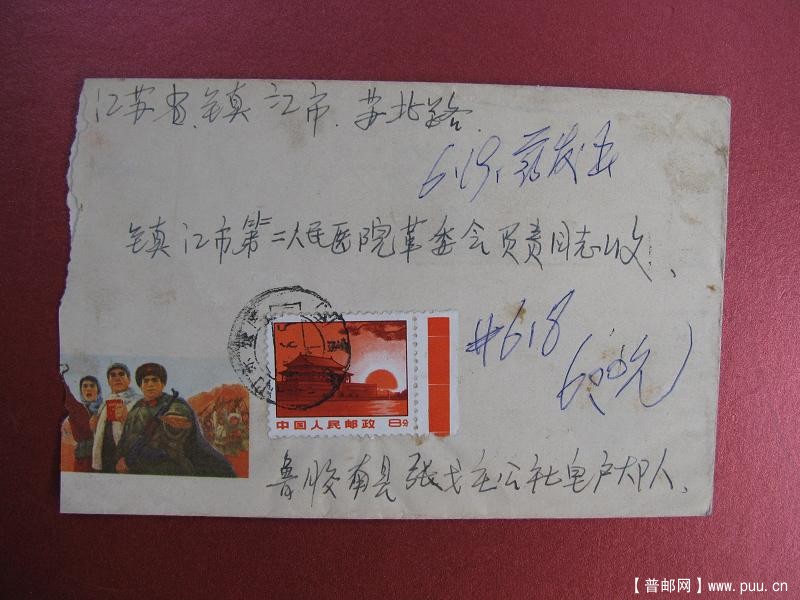 江苏省、镇江市、苏北路.
6.19.药发
镇江市第二人民医院革委会负责同志收、
#618
600元
中国人民邮政 8分
鲁胶南县张戈庄公社皂户大队、
【普邮网】www.puu.cn